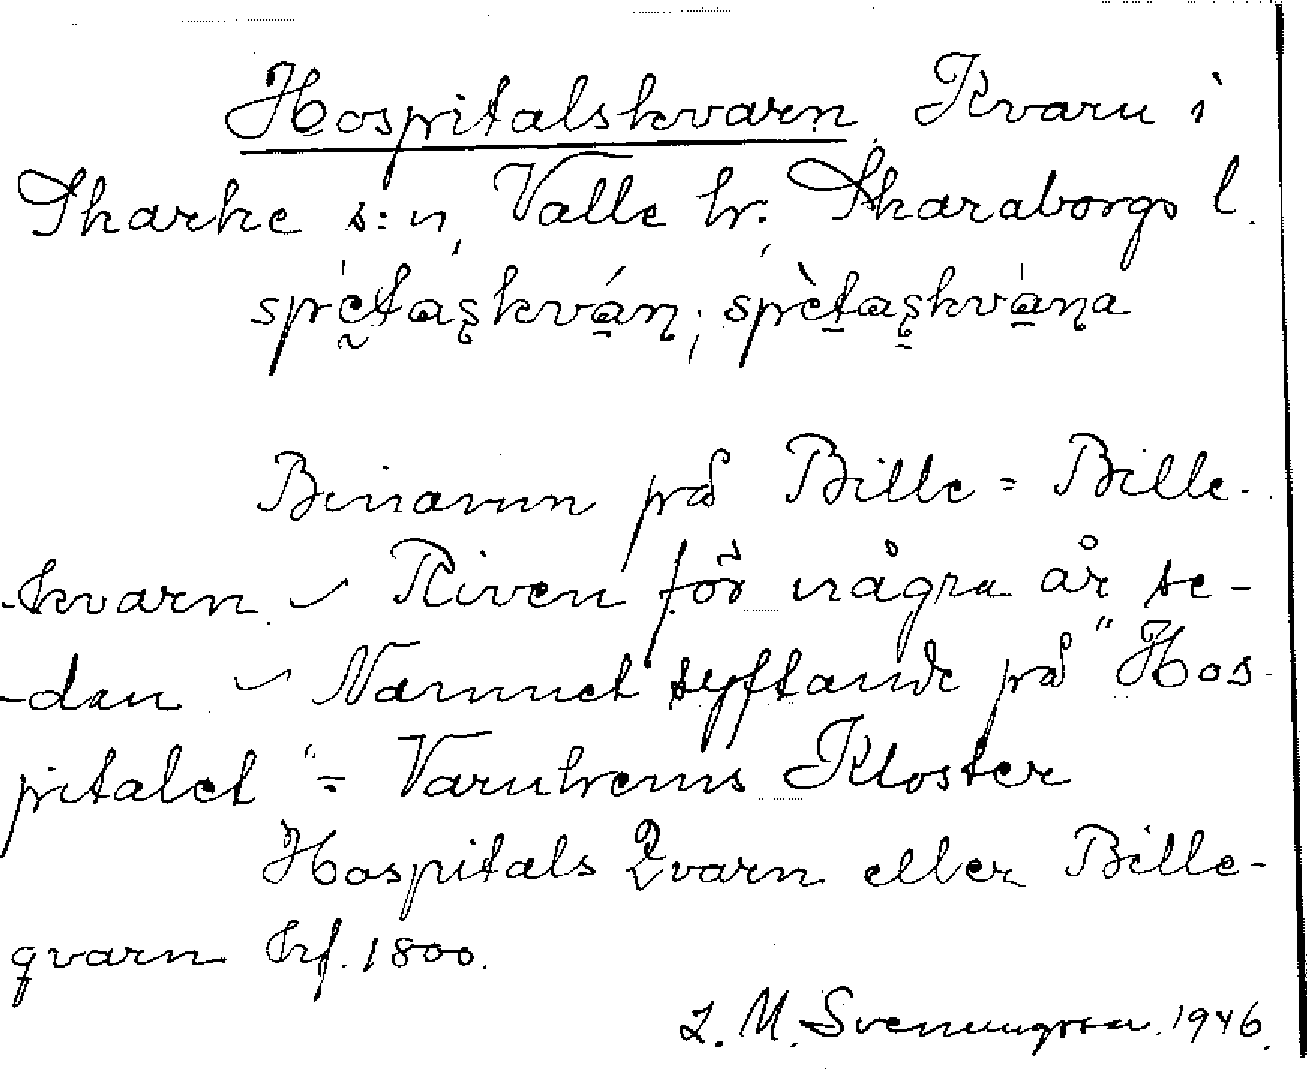 Hospitalskvarn Kvarn i
Skarke s:n, Valle hr; Skaraborgs l.
Binamn på Bille = Bille-
kvarn - Riven för några år se-
dan - Namnet syftande på "Hos-
pitalet" = Varnhems Kloster
Hospitals Qvarn eller Bille-
qvarn Krf. 1800.
L. M. Svenungsson 1946.